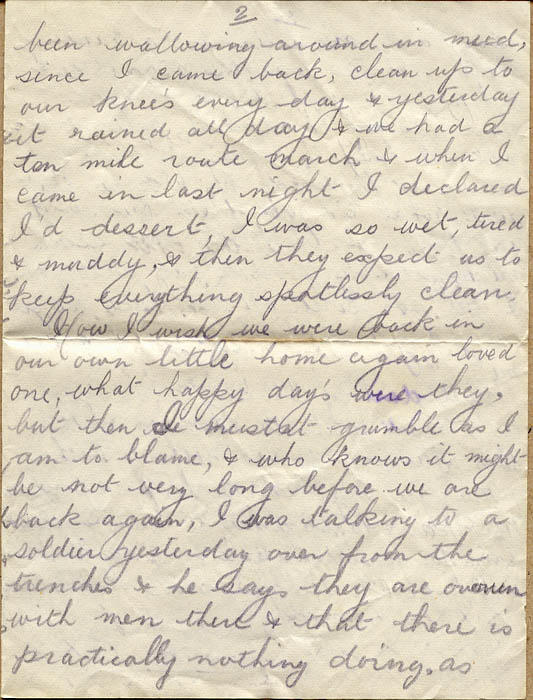 2
been wallowing around in mud,
since I came back, clean up to
our knee's every day & yesterday
it rained all day & we had a
ten mile route march & when I
came in last night I declared
I'd dessert, I was so wet, tired
& muddy, & then they expect us to
keep everything spotlessly clean.
How I wish we were back in
our own little home again loved
one, what happy day's were they,
but then I mustnt grumble as I
am to blame, & who knows it might
be not very long before we are
back again, I was talking to a
soldier yesterday over from the
trenches & he says they are overrun
with men there & that there is
practically nothing doing, as